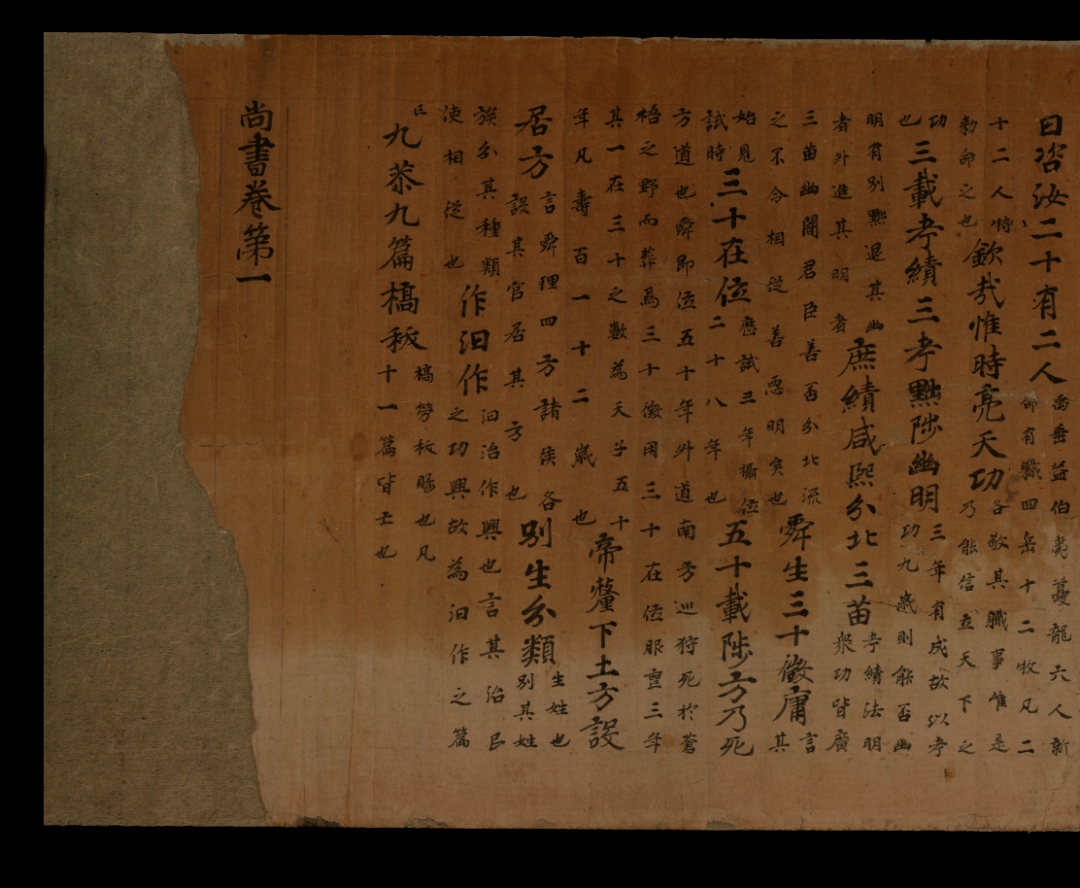 曰咨汝二十有二人禹垂益伯夷夔龍六人新命有職四岳十二牧凡二
十二人特勑命之也欽哉惟時亮天功各敬其職事惟是乃能信立天下之
功也三載考績三考黜陟幽明三年有成故以考功九歲則能否幽
明有別黜退其幽者外進其明者庶績咸熙分北三苗考績法明衆功皆廣
三苗幽闇君臣善否分北流之不令相從善惡明矣也舜生三十徵庸言其
始見試時三十在位應試三年攝位二十八年也五十載陟方乃死
方道也舜即位五十年外道南方巡狩死於蒼梧之野而葬焉三十徵用三十在位服喪三年
其一在三十之數為天子五十年凡壽百一十二歲也帝釐下土方設
居方言舜理四方諸侯各設其官居其方也別生分類生姓也別其姓
族分其種類使相從也作汩作汩治作興也言其治民之功興故為汩作之篇
亡九恭九篇槁飫槁勞飫賜也凡十一篇皆亡也
尚書卷第一